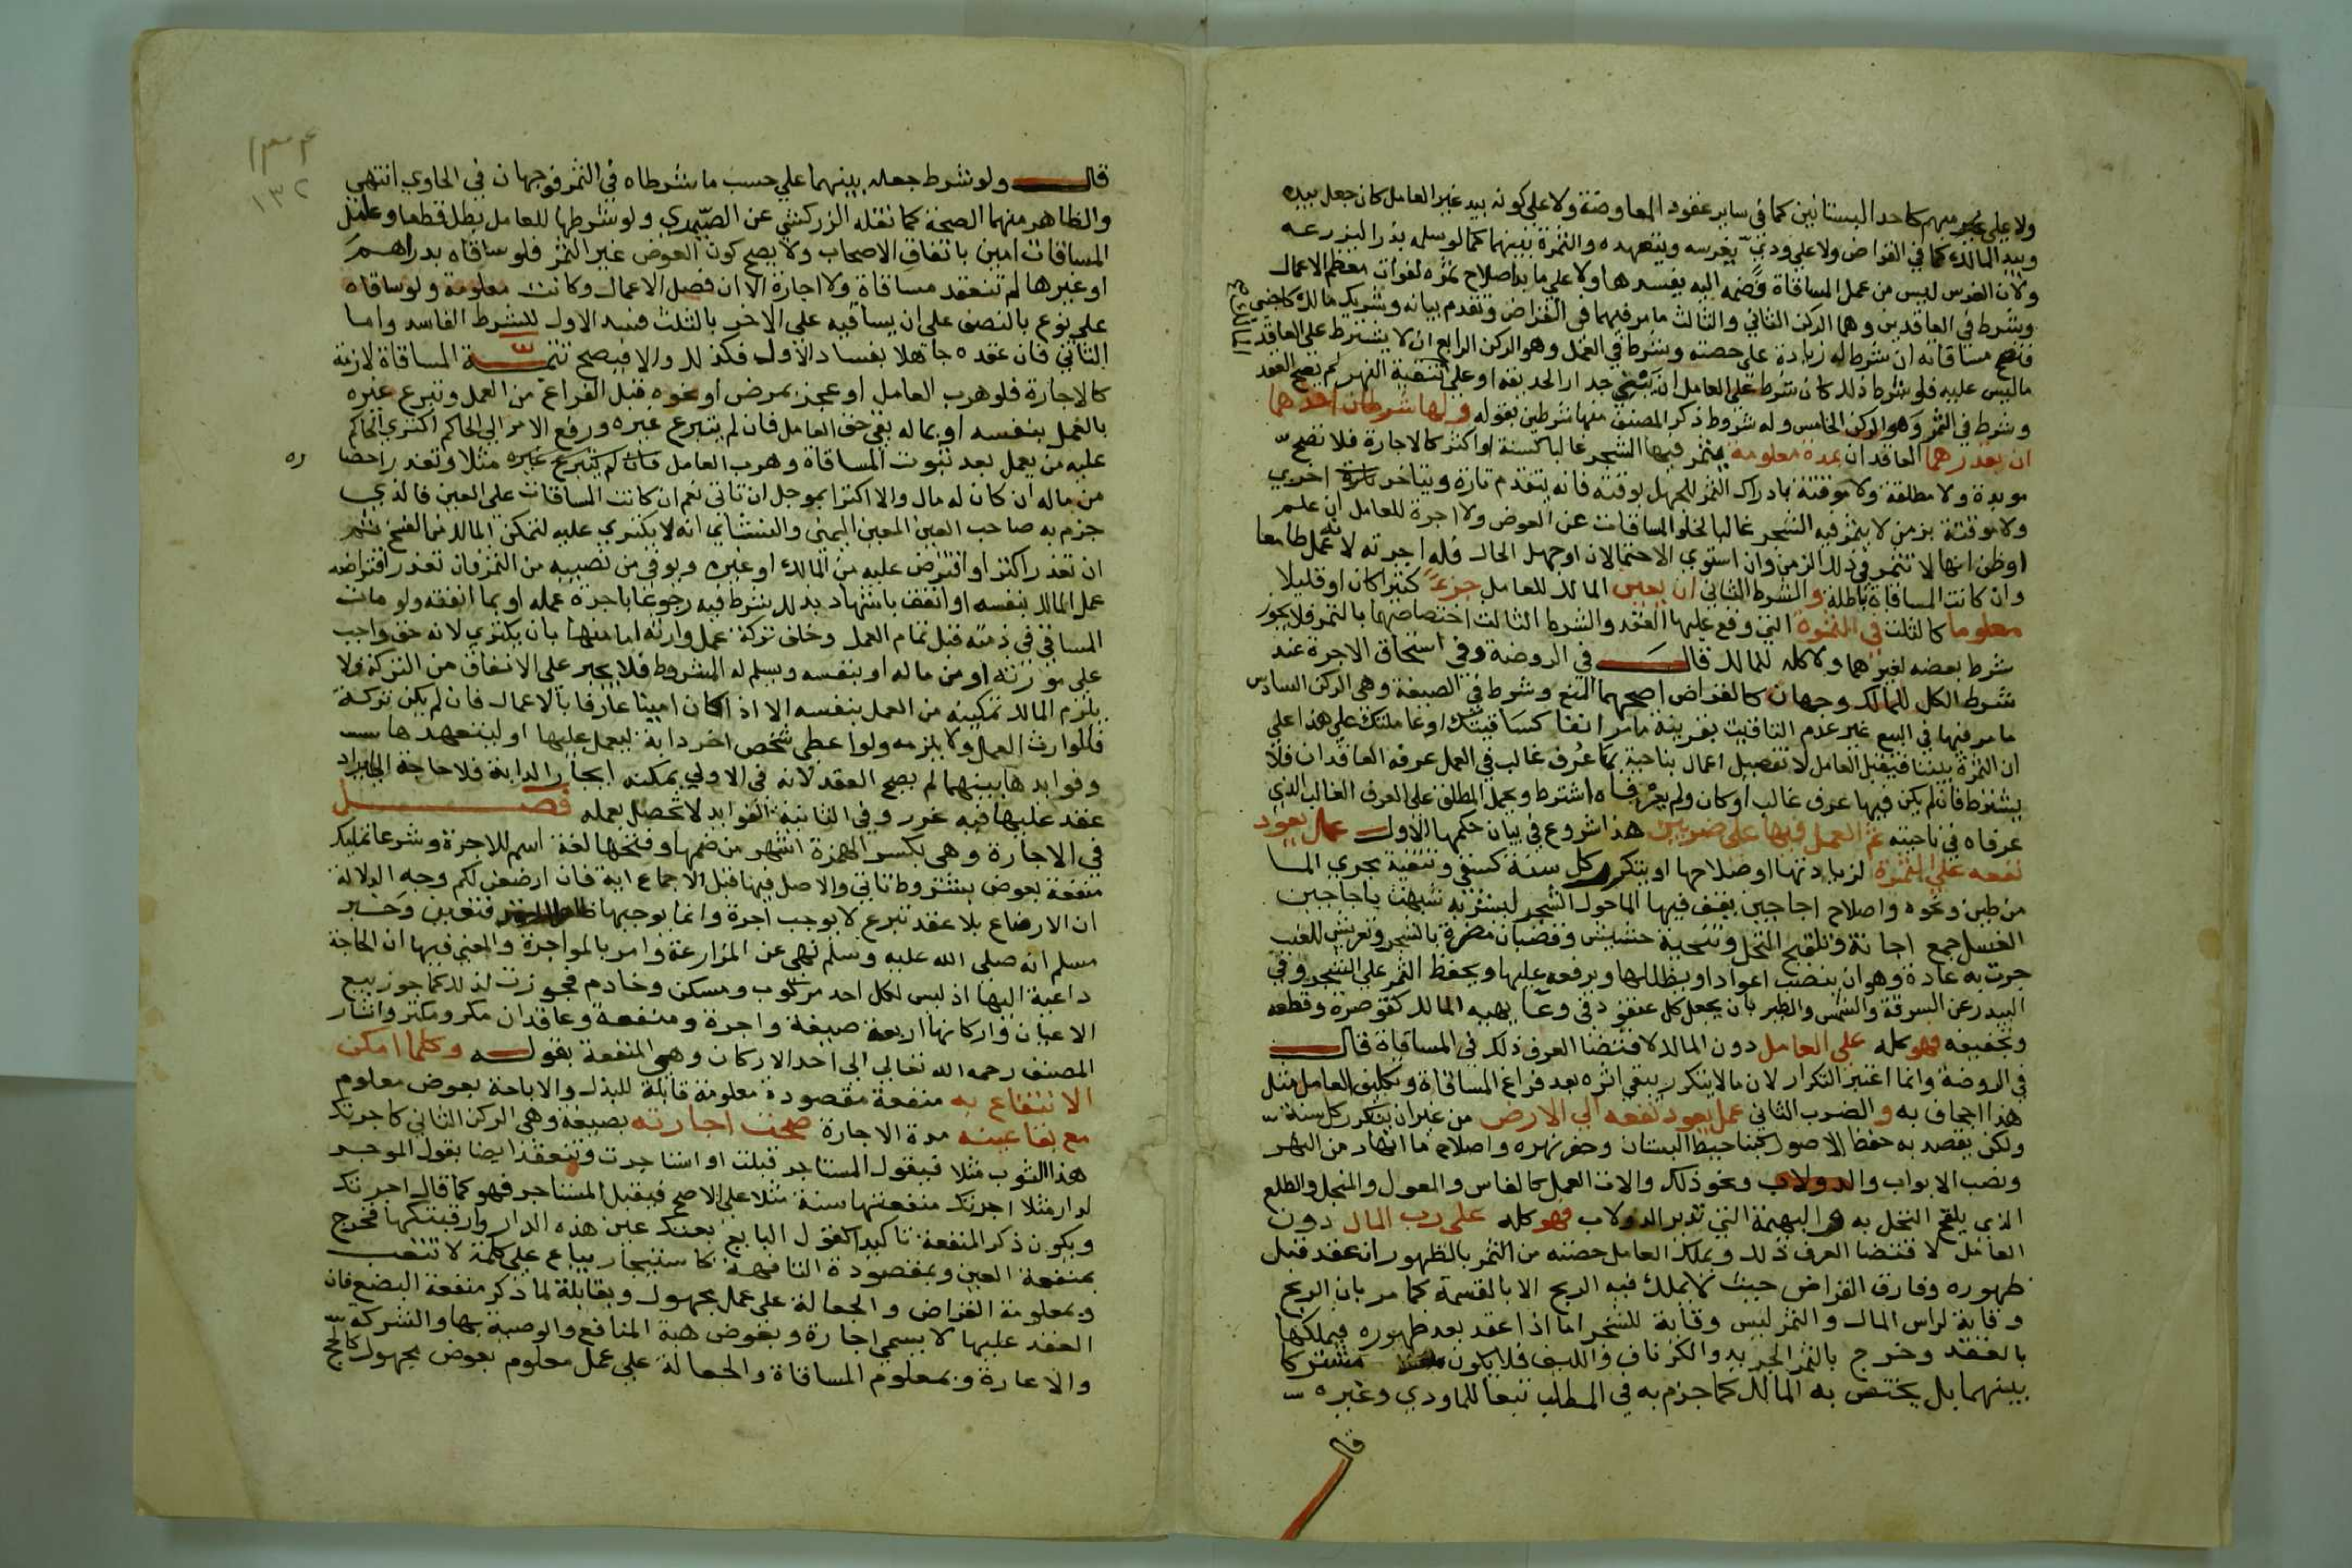 ولا على غير مبهم كاحد البستانين كما في ساير عقود المعاوضة ولا على كونه بيد غير العامل كان جعل بيده
وبيد المالك كما في القراض ولا على ودي يغرسه ويتعهده والثمرة بينهما كما لو سلمه بذرا ليزرعه
ولان الغرس ليس من عمل المساقاة فضمه اليه يفسدها ولا على ما بدا صلاح ثمره لفوات معظم الاعمال
وشرط في العاقدين وهما الركن الثاني والثالث ما مر فيهما في القراض وتقدم بيانه وشريك مالك كاجنبي
فتصح مساقاته ان شرط له زيادة على حصته وشرط في العمل وهو الركن الرابع ان لا يشترط على العاقد
ما ليس عليه فلو شرط ذلك كان شرط على العامل ان يبني جدار الحديقة او على تنقية النهر لم يصح العقد
وشرط في الثمر وهو الركن الخامس وله شروط ذكر المصنف منها شرطين بقوله ولها شرطان احدهما
ان يقدرهما العاقدان بمدة معلومة يثمر فيها الشجر غالبا كسنة او اكثر كالاجارة فلا تصح
موبدة ولا مطلقة ولا موقتة بادراك الثمر للجهل بوقته فانه يتقدم تارة ويتاخر تارة اخري
ولا موقتة بزمن لا يثمر فيه الشجر غالبا لخلو المساقات عن العوض ولا اجرة للعامل ان علم
او ظن انها لا تثمر في ذلك الزمن وان استوي الاحتمالان او جهل الحال فله اجرته لانه عمل طامعا
وان كانت المساقاة باطلة والشرط الثاني ان يعين المالك للعامل جزءً كثيرا كان او قليلا
معلوما كالثلث في الثمرة التي وقع عليها العقد والشرط الثالث اختصاصهما بالثمر فلا يجوز
شرط بعضه لغيرهما ولا كله للمالك قال في الروضة وفي استحقاق الاجرة عند
شرط الكل للمالك وجهان كالقراض اصحهما المنع وشرط في الصيغة وهي الركن السادس
ما مر فيها في البيع غير عدم التاقيت بقرينة ما مر انفا كساقيتك او عاملتك على هذا على
ان الثمرة بيننا فيقبل العامل لا تفصيل اعمال بناحية بها عُرف غالب في العمل عرفه العاقدان فلا
يشترط فان لم يكن فيها عرف غالب او كان ولم يعرفاه اشترط ويحمل المطلق على العرف الغالب الذي
عرفاه في ناحيته ثم العمل فيها على ضربين هذا شروع في بيان حكمها الاول عمل يعود
نفعه على الثمرة لزيادتها او صلاحها او يتكرر كل سنة كسقي وتنقية مجري الما
من طين ونحوه واصلاح اجاجين يقف فيها الما حول الشجر ليشربه شبهت باجاجين
الغسل جمع اجانة وتلقيح النخل وتنحية حشيش وقضبان مضرة بالشجر وتعريش للعنب
جرت به عادة وهو ان ينصب اعوادا ويظللها ويرفعه عليها ويحفظ الثمر على الشجر وفي
البيدر عن السرقة والشمس والطير بان يجعل كل عنقود في وعا يهيه المالك كقوصرة وقطعه
وتجفيفه فهو كله على العامل دون المالك لاقتضا العرف ذلك في المساقاة قال
في الروضة وانما اعتبر التكرار لان ما لا يتكرر يبقي اثره بعد فراغ المساقاة وتكليف العامل مثل
هذا اجحاف به والضرب الثاني عمل يعود نفعه الي الارض من غير ان يتكرر كل سنة
ولكن يقصد به حفظ الاصول كبنا حيط البستان وحفر نهره واصلاح ما انهار من النهر
ونصب الابواب والدولاب ونحو ذلك والات العمل كالفاس والمعول والمنجل والطلع
الذي يلقح النخل به والبهيمة التي تدير الدولاب فهو كله على رب المال دون
العامل لاقتضا العرف ذلك ويملك العامل حصته من الثمر بالظهور ان عقد قبل
ظهوره وفارق القراض حيث لا يملك فيه الربح الا بالقسمة كما مر بان الربح
وقاية لراس المال والثمر ليس وقاية للشجر اما اذا عقد بعد ظهوره فيملكها
بالعقد وخرج بالثمر الجريد والكرناف والليف فلا يكون مشتركا
بينهما بل يختص به المالك كما جزم به في المطلب تبعا للماوردي وغيره
قال
١٣٢
قال ولو شرط جعله بينهما على حسب ما شرطاه في الثمر فوجهان في الحاوي انتهي
والظاهر منهما الصحة كما نقله الزركشي عن الصيمري ولو شرطها للعامل بطل قطعا وعامل
المساقات امين باتفاق الاصحاب ولا يصح كون العوض غير الثمر فلو ساقاه بدراهم
او غيرها لم تنعقد مساقاة ولا اجارة الا ان فصل الاعمال وكانت معلومة ولو ساقاه
على نوع بالنصف على ان يساقيه على الاخر بالثلث فسد الاول للشرط الفاسد واما
الثاني فان عقده جاهلا بفساد الاول فكذلك والا فيصح تتمة المساقاة لازمة
كالاجارة فلو هرب العامل او عجز بمرض او نحوه قبل الفراغ من العمل وتبرع غيره
بالعمل بنفسه او بماله بقي حق العامل فان لم يتبرع غيره ورفع الامر الي الحاكم اكتري الحاكم
عليه من يعمل بعد ثبوت المساقاة وهرب العامل فان لم يتبرع غيره مثلا وتعذر احضا ره
من ماله ان كان له مال والا اكترا بموجل ان تاتي نعم ان كانت المساقات على العين فالذي
جزم به صاحب المعين اليمني والنشائي انه لا يكتري عليه لتمكن المالك من الفسخ ثم
ان تعذر اكترا او اقترض عليه من المالك او غيره ويوفي من نصيبه من الثمر فان تعذر اقتراضه
عمل المالك بنفسه او انفق باشهاد بذلك شرط فيه رجوعا باجرة عمله او بما انفقه ولو مات
المساقي في ذمته قبل تمام العمل وخلف تركة عمل وارثه اما منها بان يكتري لانه حق واجب
على مورثه او من ماله او بنفسه ويسلم له المشروط فلا يجبر على الانفاق من التركة ولا
يلزم المالك تمكينه من العمل بنفسه الا اذا كان امينا عارفا بالاعمال فان لم يكن تركة
فللوارث العمل ولا يلزمه ولو اعطي شخص اخر دابة ليعمل عليها او ليتعهدها
وفوايدها بينهما لم يصح العقد لانه في الاولي يمكنه ايجار الدابة فلا حاجة الي ايراد
عقد عليها فيه غرر وفي الثانية الفوايد لا تحصل بعمله فصل
في الاجارة وهي بكسر الهمزة اشهر من ضمها وفتحها لغة اسم للاجرة وشرعا تمليك
منفعة بعوض بشروط تاتي والاصل فيها قبل الاجماع اية فان ارضعن لكم وجه الدلالة
ان الارضاع بلا عقد تبرع لا يوجب اجرة وانما يوجبها فتعين وخبر
مسلم انه صلى الله عليه وسلم نهي عن المزارعة وامر بالمواجرة والمعني فيها ان الحاجة
داعية اليها اذ ليس لكل احد مركوب ومسكن وخادم فجوزت لذلك كما جوز بيع
الاعيان واركانها اربعة صيغة واجرة ومنفعة وعاقدان مكر ومكتر واشار
المصنف رحمه الله تعالي الي احد الاركان وهي المنفعة بقوله وكلما امكن
الانتفاع به منفعة مقصودة معلومة قابلة للبذل والاباحة بعوض معلوم
مع بقا عينه مدة الاجارة صحت اجارته بصيغة وهي الركن الثاني كاجرتك
هذا الثوب مثلا فيقول المستاجر قبلت او استاجرت وتنعقد ايضا بقول الموجر
لدار مثلا اجرتك منفعتها سنة مثلا على الاصح فيقبل المستاجر فهو كما قال اجرتك
ويكون ذكر المنفعة تاكيدا كقول البايع بعتك عين هذه الدار ورقبتها فخرج
بمنفعة العين وبمقصودة التافهة كاستيجار بياع على كلمة لا تتعب
وبمعلومة القراض والجعالة على عمل مجهول وبقابلة لما ذكر منفعة البضع فان
العقد عليها لا يسمي اجارة وبعوض هبة المنافع والوصية بها والشركة
والاعارة وبمعلوم المساقاة والجعالة على عمل معلوم بعوض مجهول كالحج